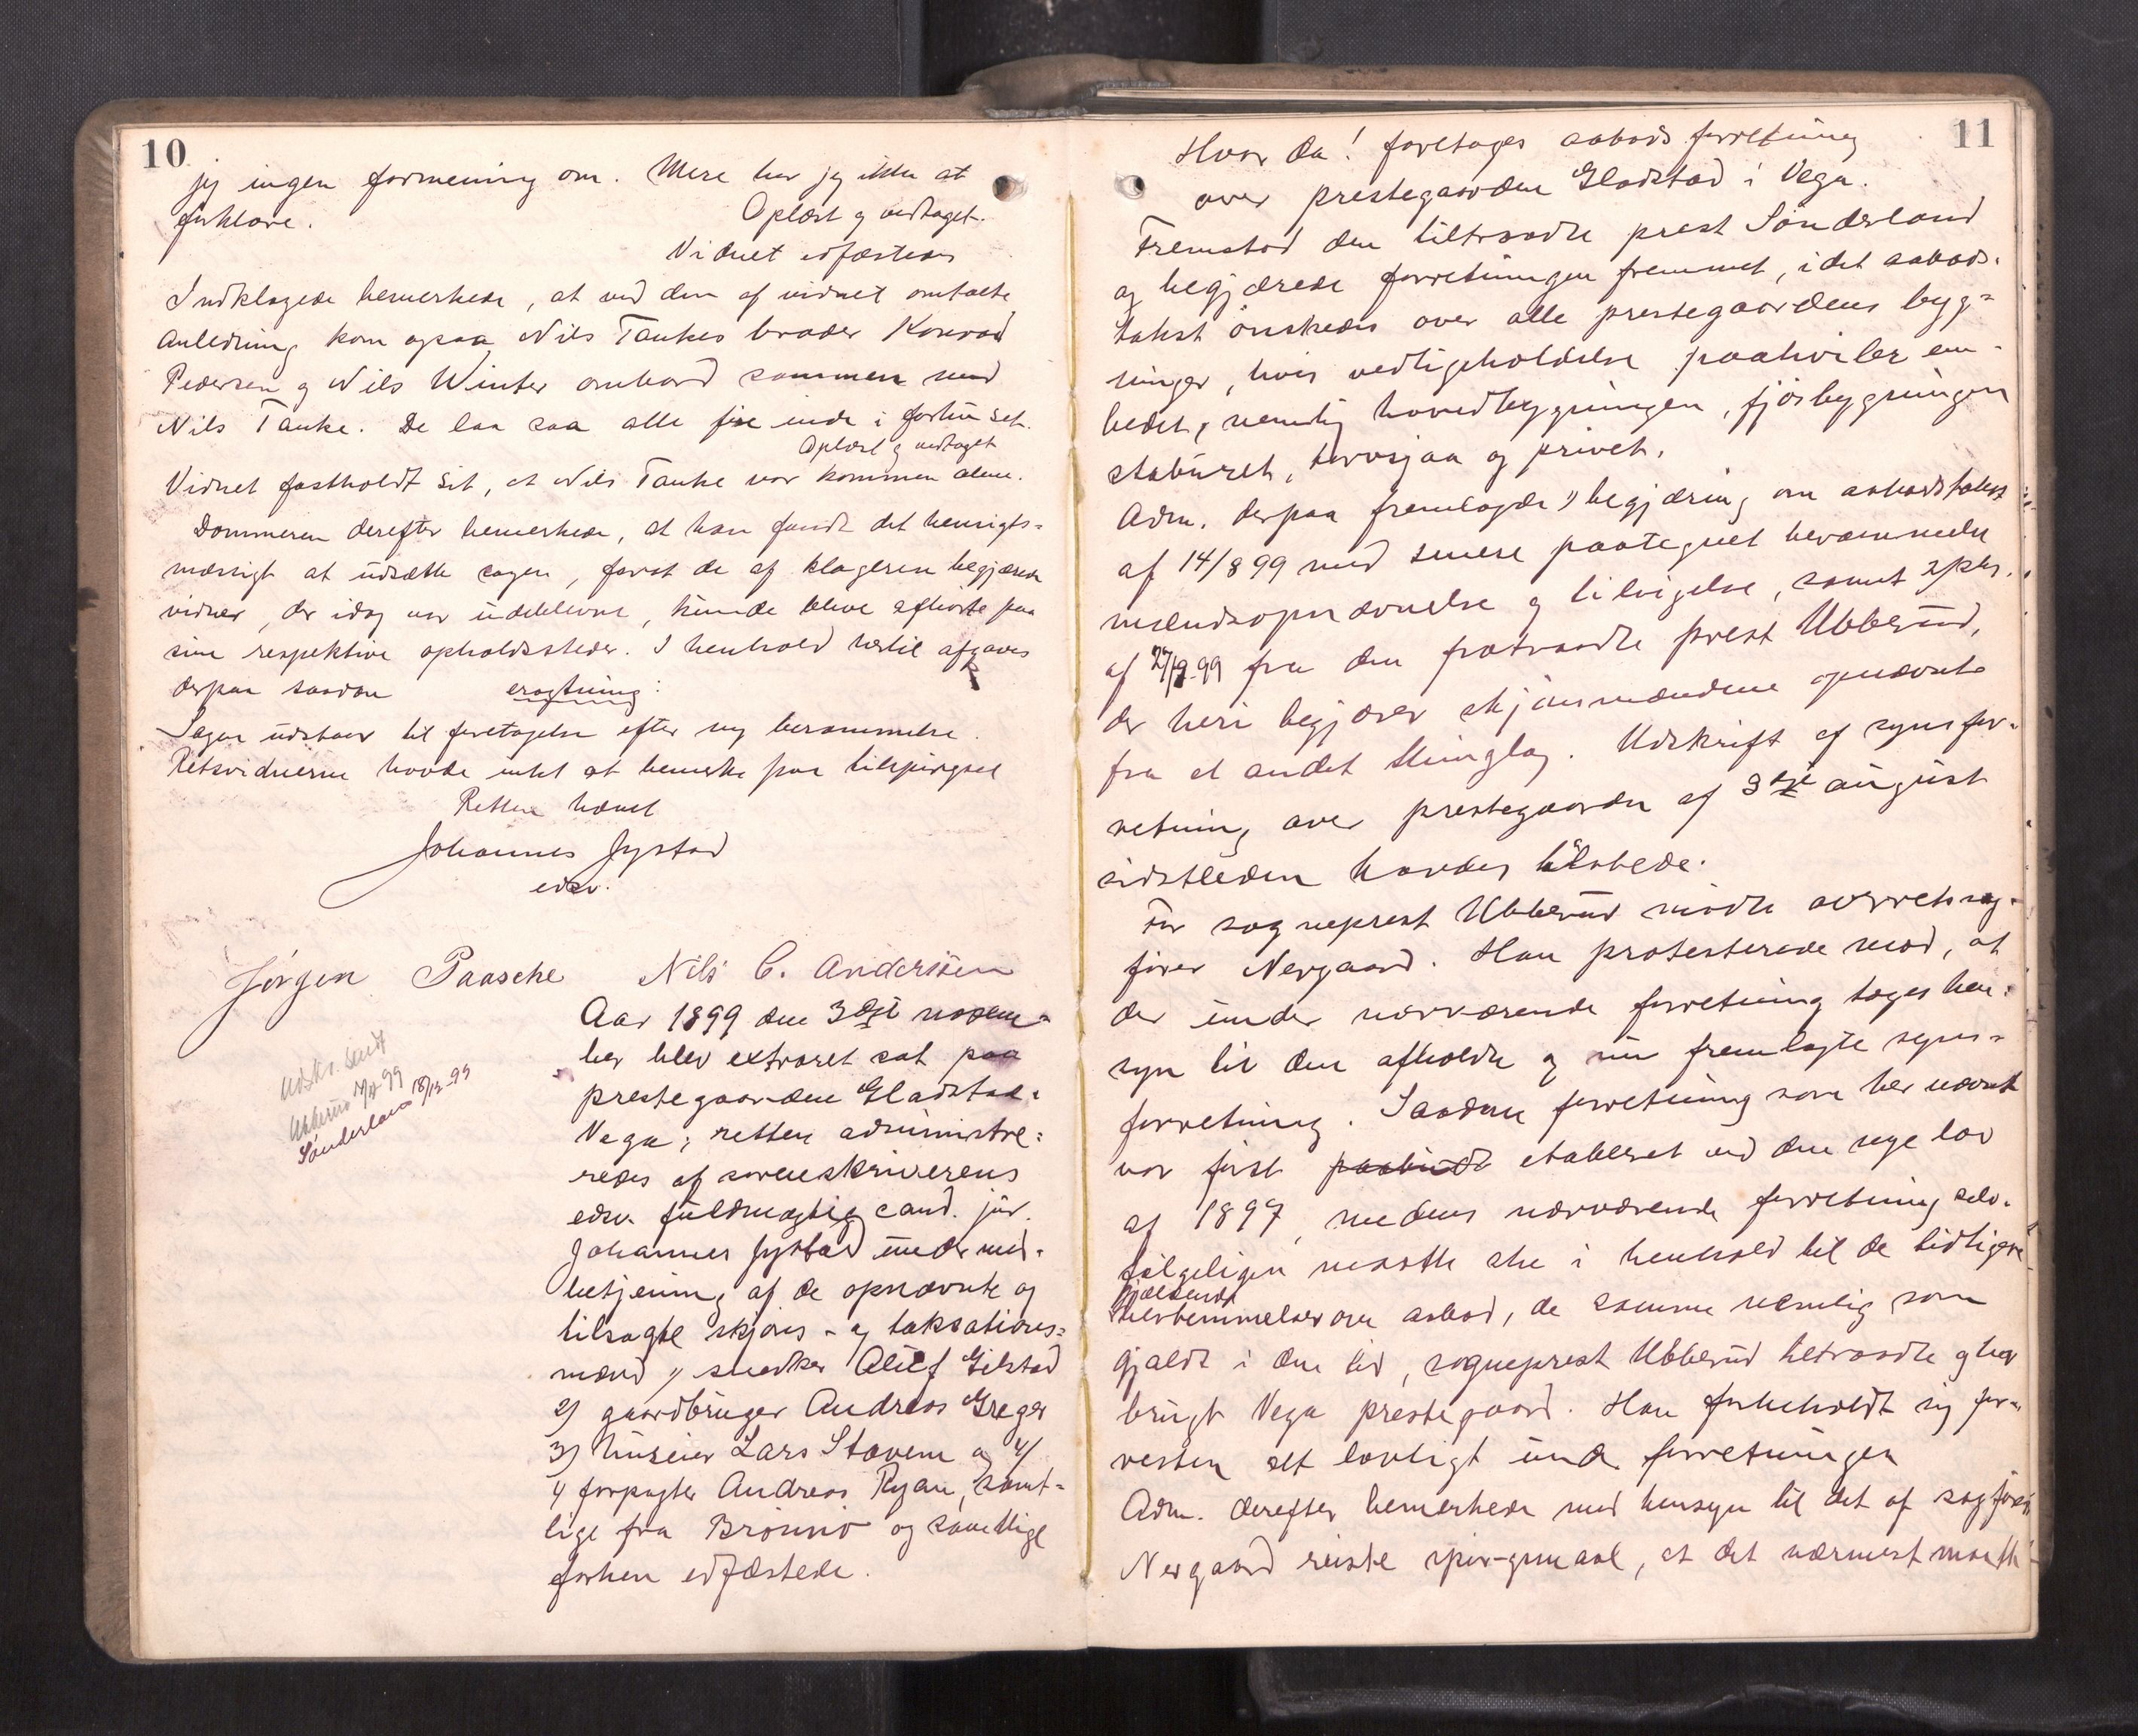 10
jeg ingen formening om. Mere har jeg ikke at
forklare. Oplæst og vedtaget.
Vidnet edfæstedes
Indklagede bemerkede, at ved den af vidnet omtalte
anledning kom ogsaa Nils Tankes broder Konrad
Pedersen og Nils Winter ombord sammen med
Nils Tanke. De laa saa alle fire inde i forhuset.
Oplæst og vedtaget
Vidnet fastholdt sit, at Nils Tanke var kommen alene.
Dommeren derefter bemerkede, at han fandt det hensigts=
mæssigt at udsætte sagen, forat de af klageren begjærede
vidner, der idag var udeblevne, kunde blive afhørte paa
sine respektive opholdssteder. I henhold hertil afgaves
derpaa saadan eragtning:
Sagen udstaar til foretagelse efter ny berammelse.
Retsvidnerne havde intet at bemerke paa tilspørgsel
Retten hævet
Johannes Jystad
edsv.
Jørgen Paasche Nils C. Andersen
Udskr. sendt
Ubberud 99
Sønderland 18/12-99
Aar 1899 den 3die novem=
ber blev extraret sat paa
prestegaarden Gladstad i
Vega; retten administre=
redes af sorenskriverens
edsv. fuldmægtig cand. jur.
Johannes Jystad under med=
betjening af de opnævnte og
tilsagte skjøns- og taksations=
mænd 1) snedker Alulf Gilstad
2) gaardbruger Andreas Greger
3) huseier Lars Stavem og 4/
4) forpagter Andreas Ryan, samt=
lige fra Brønnø og samtlige
forhen edfæstede.
11
Hvor da! foretages aabods forretning
over prestegaarden Gladstad i Vega.
Fremstod den tiltraadte prest Sønderland
og begjærede forretningen fremmet, idet aabods=
takst ønskedes over alle prestegaardens byg=
ninger, hvis vedligeholdelse paahviler em=
bedet, nemlig hovedbygningen, fjøsbygningen
staburet, torvsjaa og privet.
Adm. derpaa fremlagde 1) begjæring om aabodstakst
af 14/8 99 med senere paategnet berammelse
mændsopnævnelse og tilsigelse, samt 2 pkt.
af 27/9-99 fra den fratraadte prest Ubberud,
der heri begjærer skjønsmændene opnævnte
fra et andet thinglag. Udskrift af synsfor=
retning over prestegaarden af 3die august
sidstleden havdes tilstede.
For sogneprest Ubberud mødte overretssag=
fører Nergaard. Han protesterede mod, at
der under nærværende forretning toges hen=
syn til den afholdte og nu fremlagte syns=
forretning. Saadan forretning som her nævnt
var først etableret ved den nye lov
af 1897, medens nærværende forretning selv=
følgeligen maatte ske i henhold til de tidligere
gjældende
bestemmelser om aabod, de samme nemlig som
gjaldt i den tid, sogneprest Ubberud tiltraadte og har
brugt Vega prestegaard. Han forbeholdt sig for=
resten alt lovligt under forretningen
Adm. derefter bemerkede med hensyn til det af sagfører
Nergaard reiste spørgsmaal, at det nærmest maatte